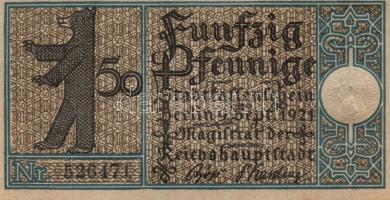 Funfzig
Pfennige
50
Stadtkassenschein
Berlin, 9. Sept. 1921
Magistrat der
Reichshauptstadt
Nr. 526171